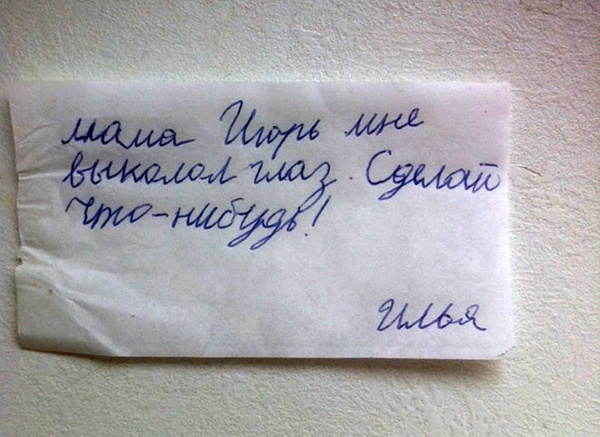 мама Игорь мне
выколол глаз. Сделай
что-нибудь!
Илья